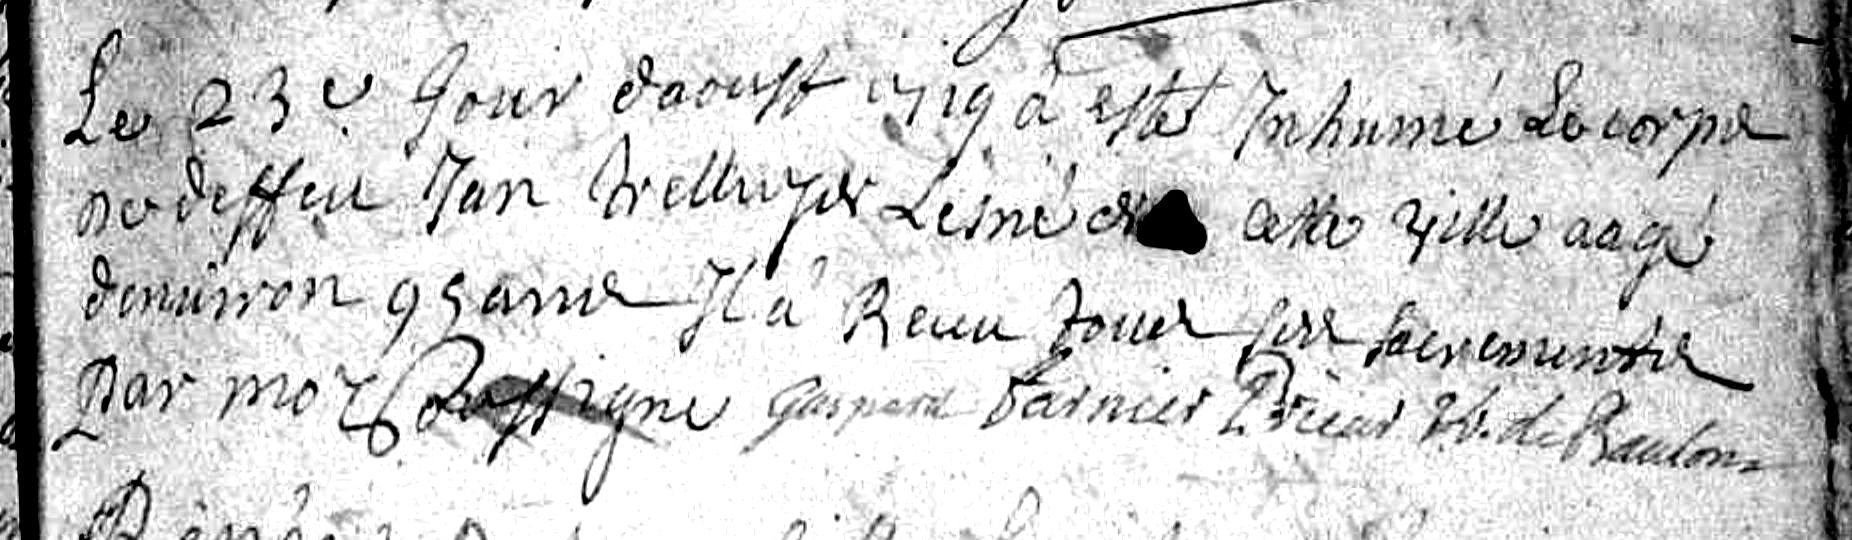 Le 23e Jour daoust 1719 a esté Inhumé Le corps
de deffeu Jan Lesné de cette ville aagé
denuiron 95 ans Il a Receu tous ses sacrements
Par moy soussigne Gaspard Garnier Prieur de Raulon